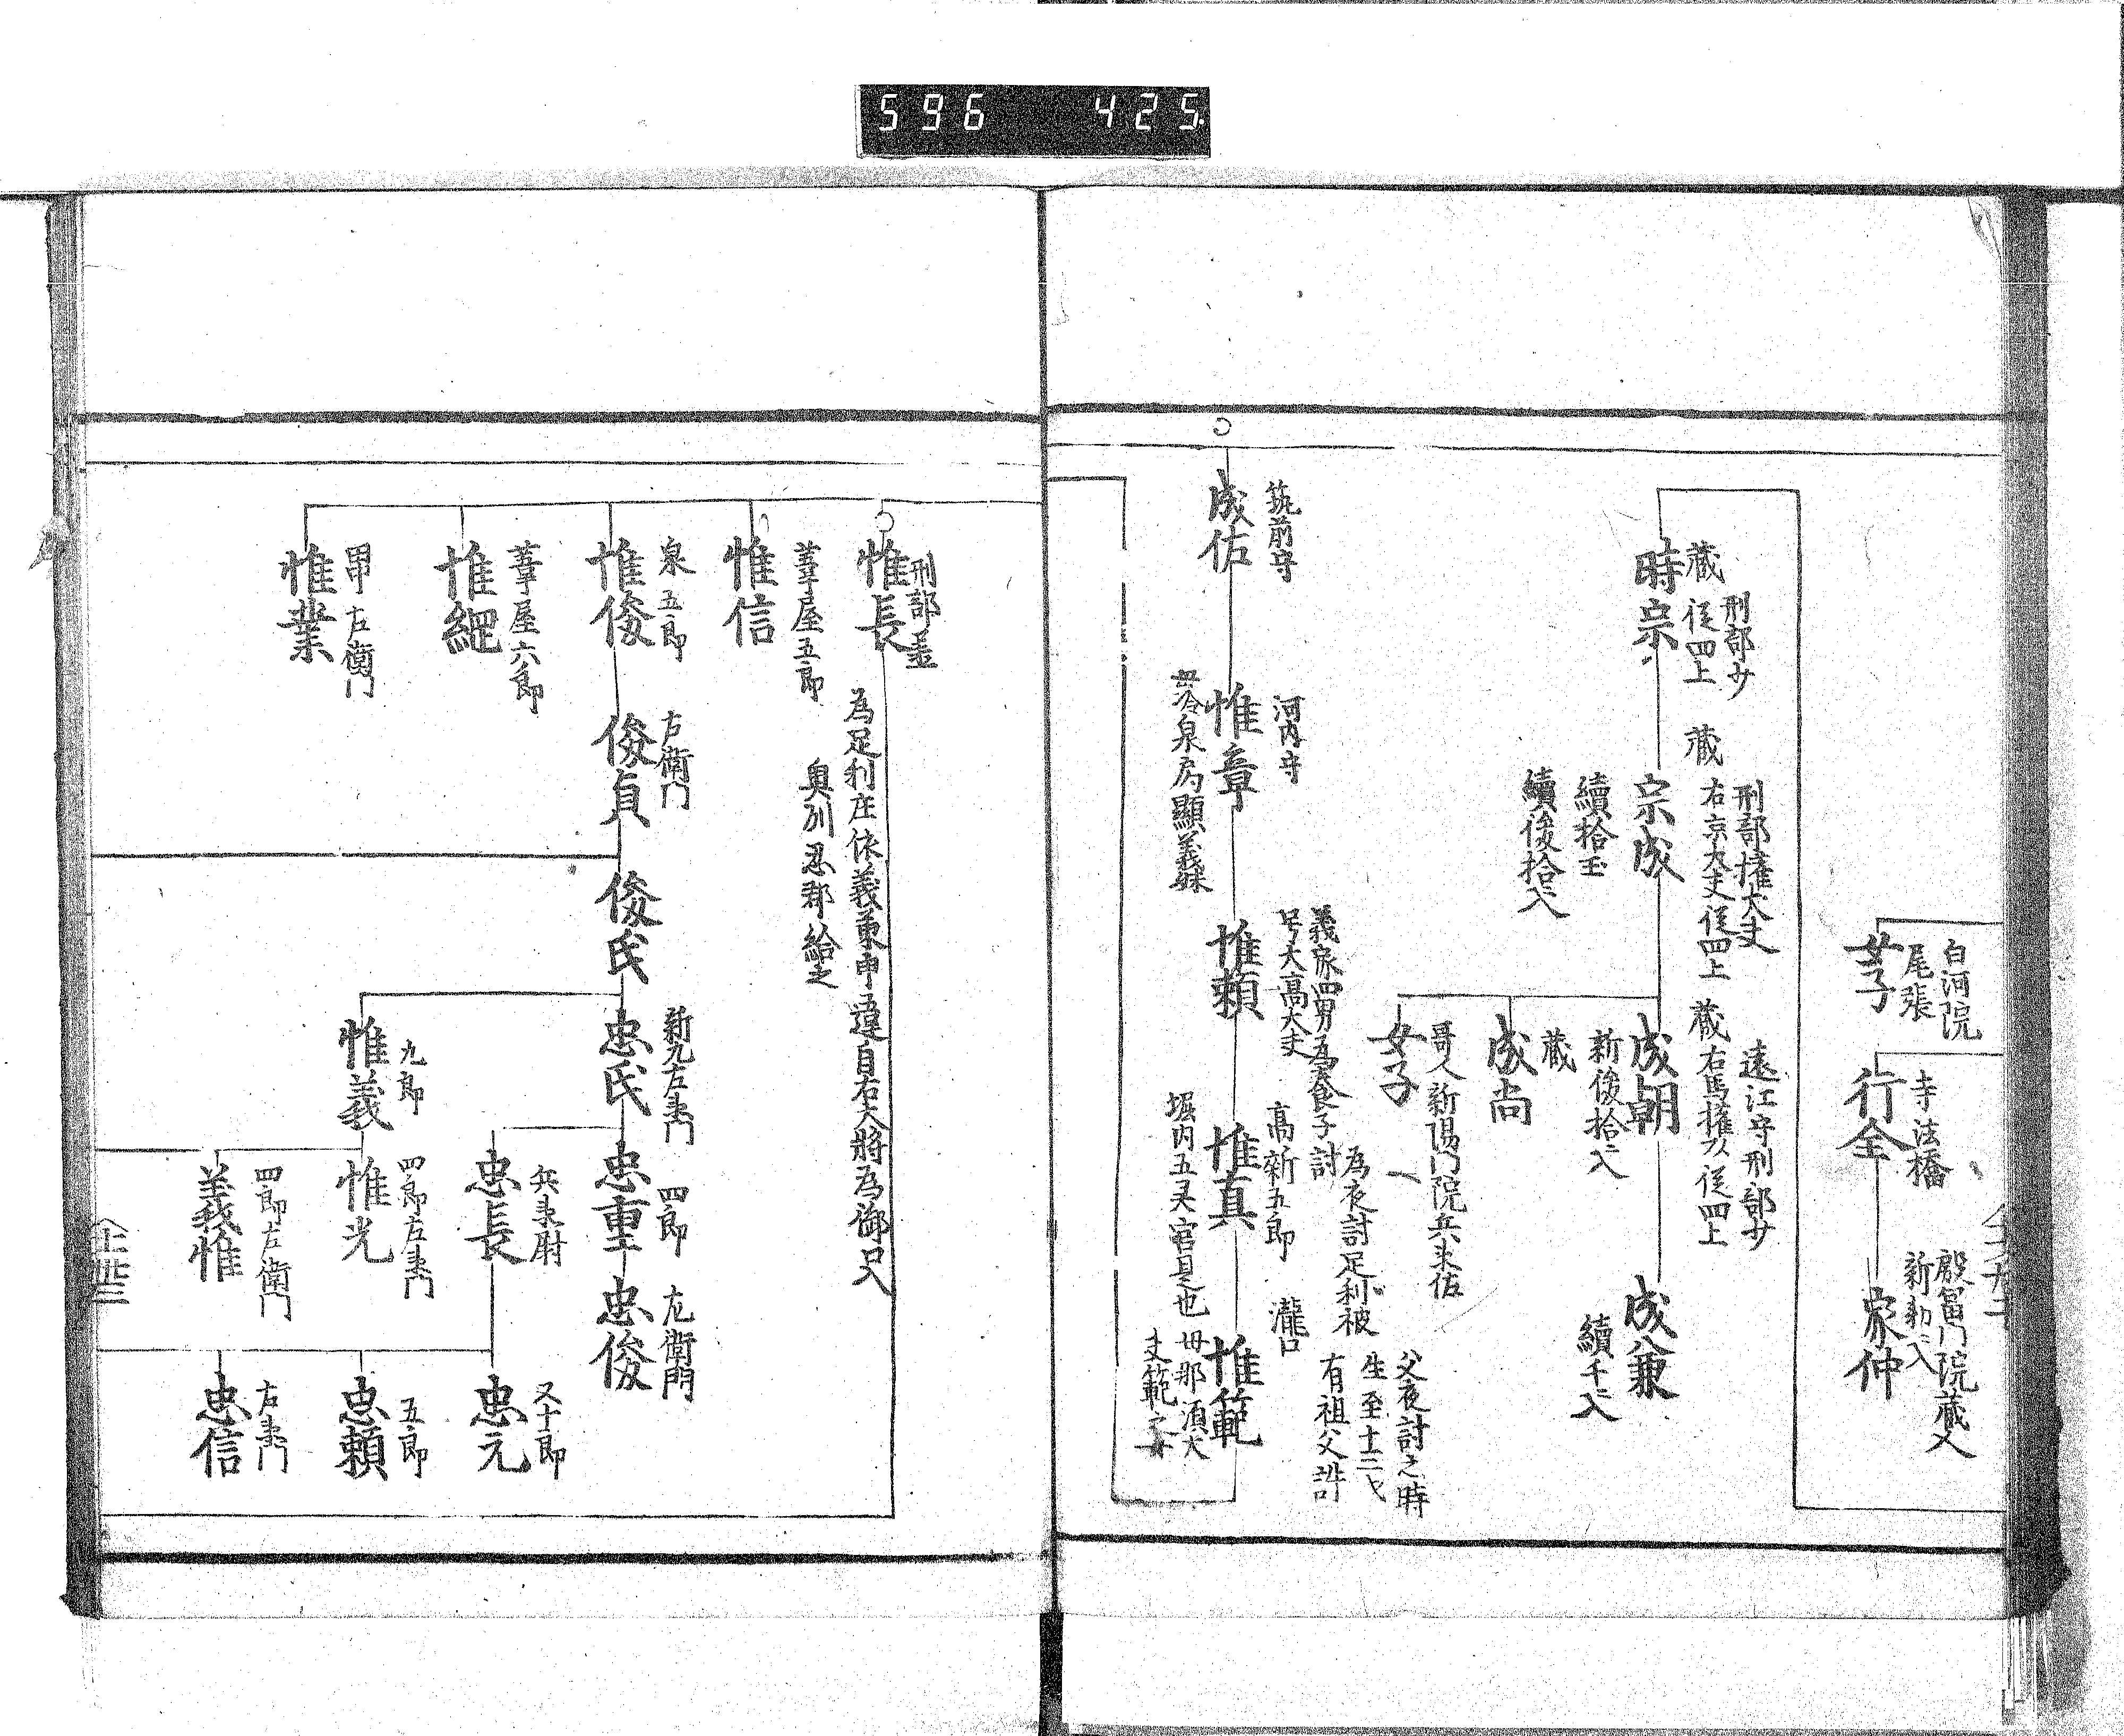 596 425
白河院
尾張
女子
寺法橋
行全
殷冨門院蔵人
新勅入
家仲
刑部少
蔵 従四上
時宗
刑部権大夫
蔵 右京大夫従四上
宗成
續拾
續後拾入
遠江守刑部少
蔵右馬権 従四上
成朝
新後拾入
成兼
續千入
蔵
成尚
哥人新陽門院兵未佐
女子
筑前守
成佐
河内守
惟章
母冷泉局顯義妹
義家四男為養子討
号大高大夫
惟頼
為夜討足利被
高新五郎 瀧口
惟真
堀内五
父夜討之時
生至十二才
有祖父許
惟範
母那須大
夫範之女
刑部丞
惟長
為足利庄依義兼申違自右大将為御
奥列忍郡給之
葦屋五郎
惟信
泉五郎
惟俊
右衛門
俊貞
俊氏
新九左末門
忠氏
四郎
忠重
左衛門
忠俊
葦屋六郎
惟綱
兵末尉
忠長
又十郎
忠元
左衛門
惟業
九郎
惟義
四郎左末門
惟光
五郎
忠頼
四郎左衛門
義惟
右末門
忠信